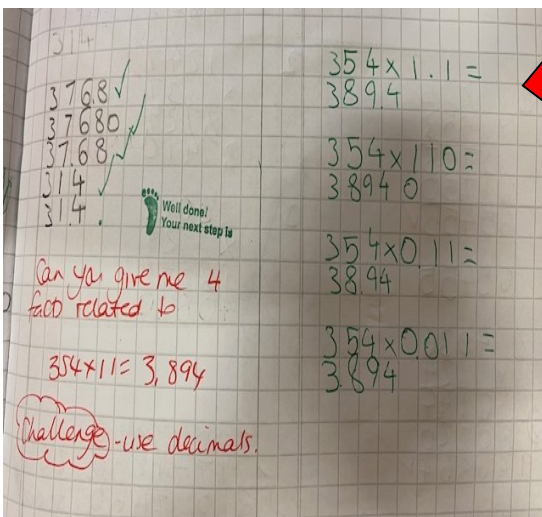 314
3768 ✓
37680 ✓
37.68 ✓
314 ✓
31.4.
Well done!
Your next step is
Can you give me 4
facts related to
354×11= 3,894
Challenge -use decimals.
354×1.1=
389.4
354×110=
38940
354×0.11=
38.94
354×0.011=
3.894